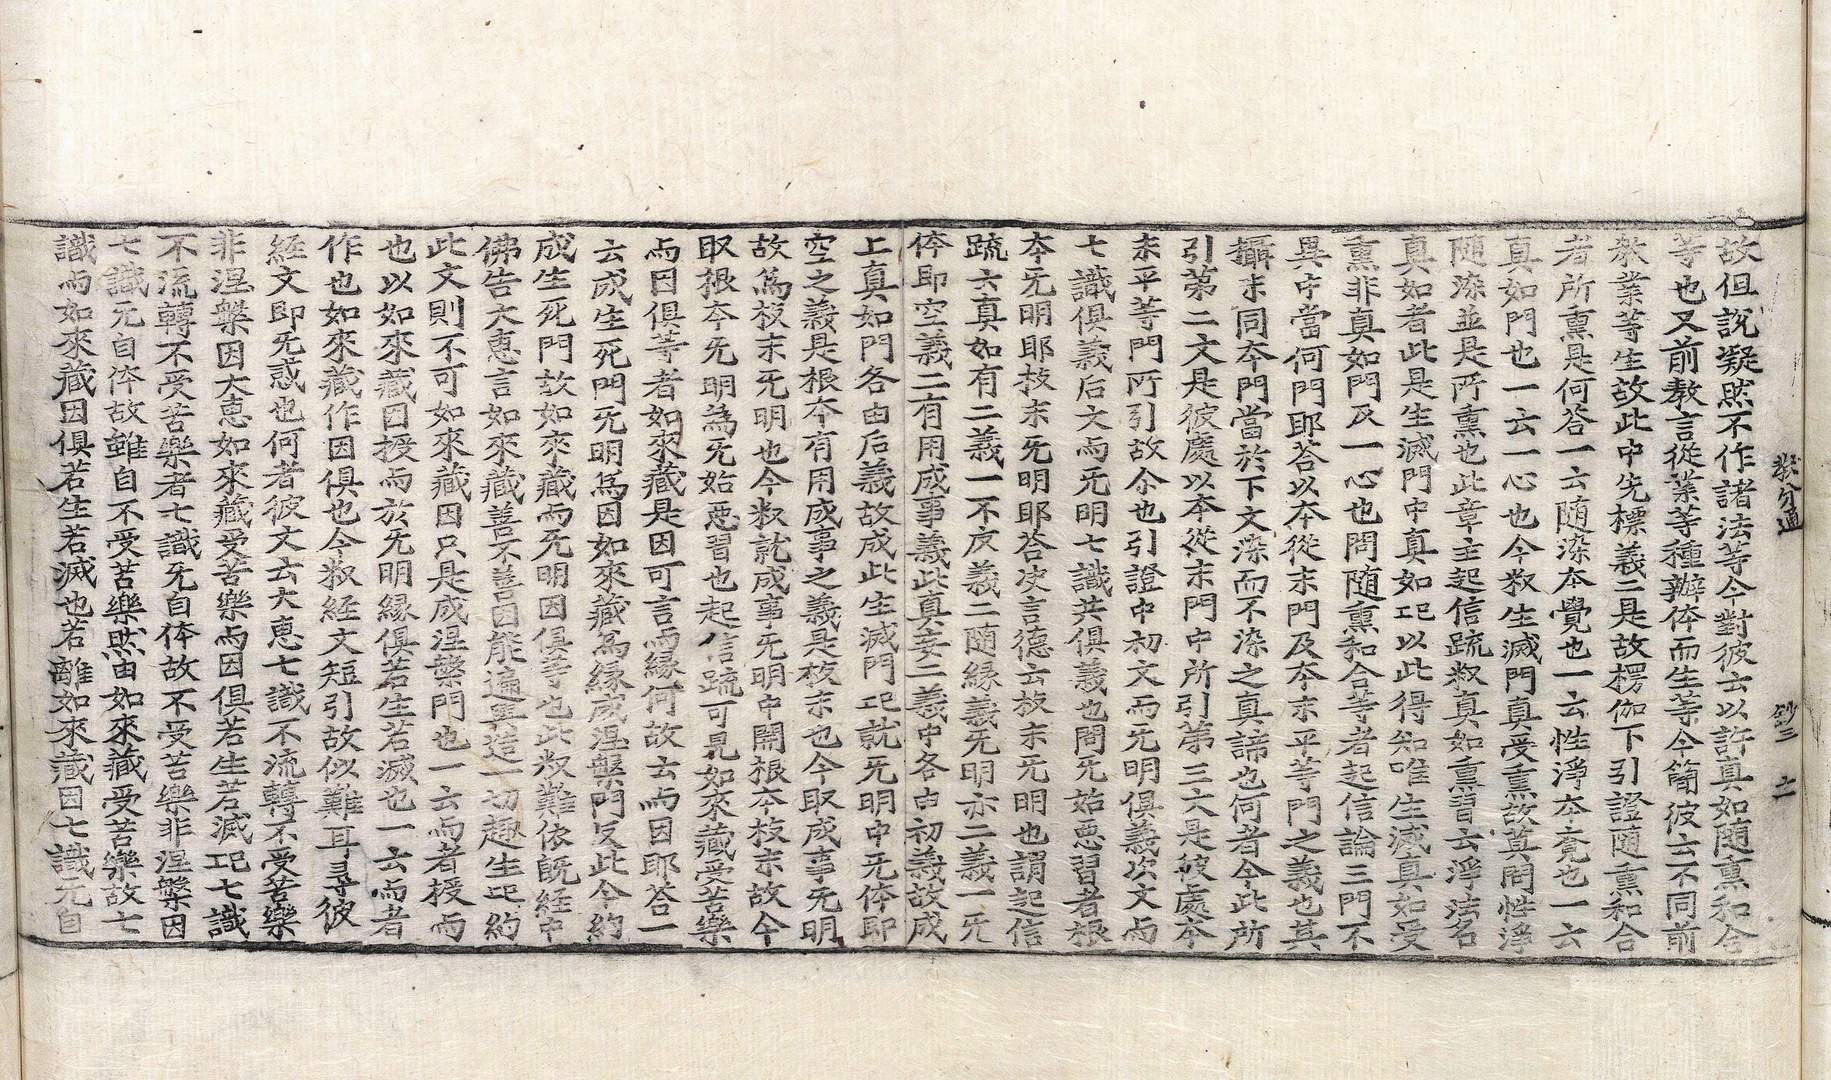 教分通　鈔三　七
故但說凝然不作諸法等今對彼云以許真如随熏和合
等也又前教言從業等種辦体而生等今簡彼云不同前
教業等生故此中先標義二是故楞伽下引證随熏和合
者所熏是何答一云随染本覺也一云性淨本覺也一云
真如門也一云一心也今叙生滅門真受熏故其問性淨
随染並是所熏也此章主起信疏叙真如熏習云淨法名
真如者此是生滅門中真如以此得知唯生滅真如受
熏非真如門及一心也問随熏和合等者起信論三門不
異中當何門耶答以本從末門及本末平等門之義也其
攝末同本門當於下文染而不染之真諦也何者今此所
引第二文是彼處以本從末門中所引第三文是彼處本
末平等門所引故尒也引證中初文而无明俱義次文而
七識俱義后文而无明七識共俱義也問无始惡習者根
本无明耶枝末无明耶答决言德云枝末无明也謂起信
疏云真如有二義一不反義二随縁義无明亦二義一无
体即空義二有用成事義此真妄二義中各由初義故成
上真如門各由后義故成此生滅門就无明中无体即
空之義是根本有用成事之義是枝末也今取成事无明
故爲枝末无明也今叙就成事无明中開根本枝末故今
取根本无明爲无始惡習也起信疏可見如來藏受苦樂
而因俱等者如來藏是因可言而縁何故云而因耶答一
云成生死門无明爲因如來藏爲縁成涅槃門反此今約
成生死門故如來藏而无明因俱等也此叙難依既經中
佛告大惠言如來藏善不善因能遍興造一切趣生約
此文則不可如來藏因只是成涅槃門也一云而者授而
也以如來藏因授而於无明縁俱若生若滅也一云而者
作也如來藏作因俱也今叙経文短引故似難耳尋彼
経文即无惑也何者彼文云大惠七識不流轉不受苦樂
非涅槃因大惠如來藏受苦樂而因俱若生若滅七識
不流轉不受苦樂者七識无自体故不受苦樂非涅槃因
七識无自体故雖自不受苦樂然由如來藏受苦樂故七
識而如來藏因俱若生若滅也若離如來藏因七識无自